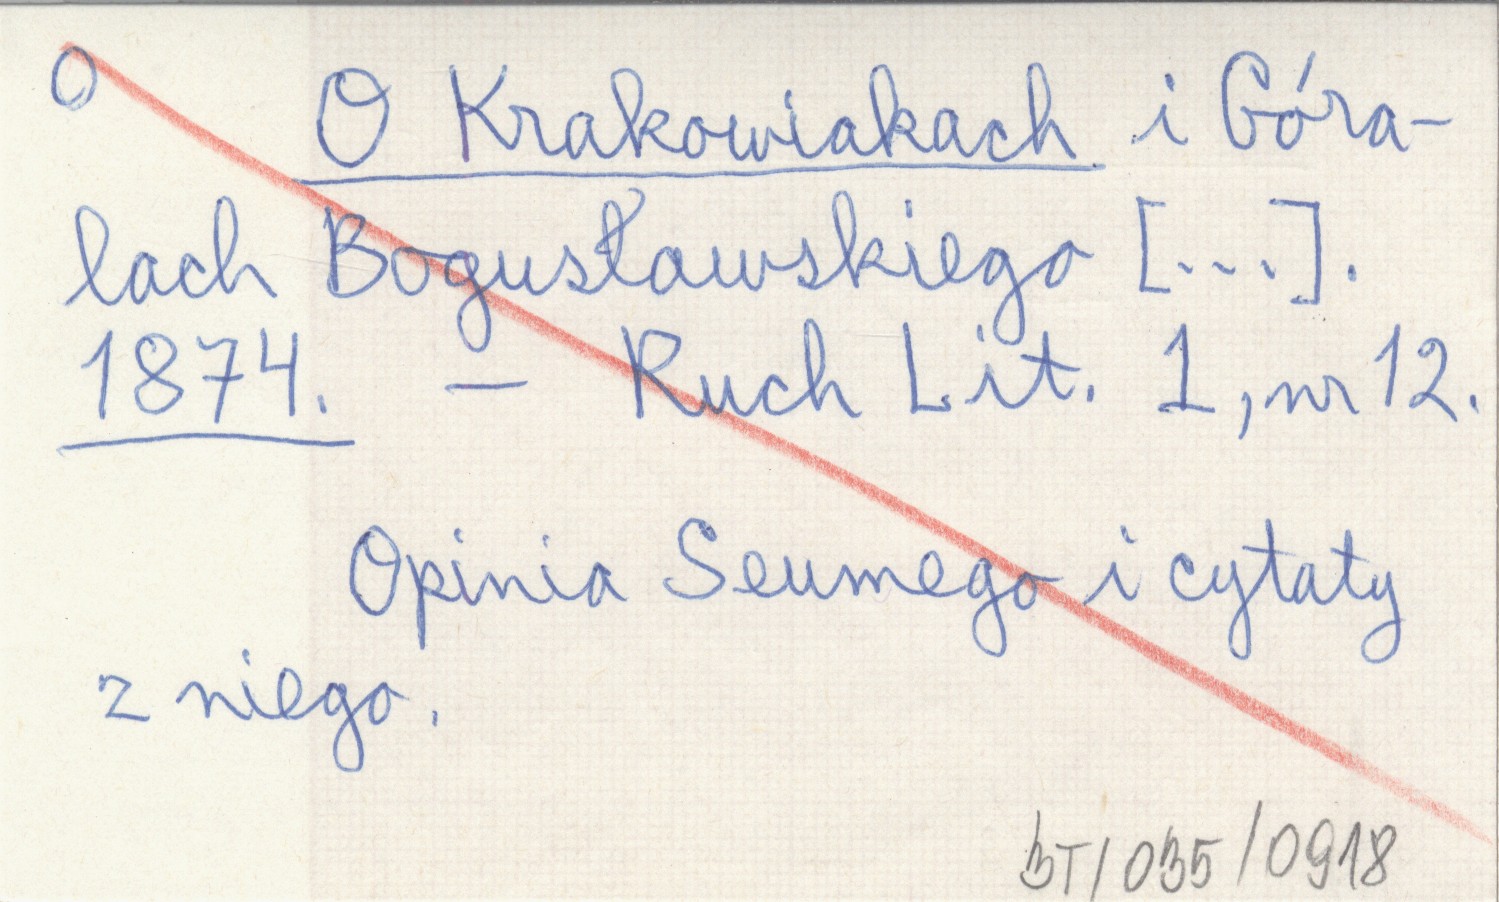 O O Krakowiakach i Góra-
lach Bogusławskiego [...].
1874. — Ruch Lit. 1, nr 12.
Opinia Seumego i cytaty
z niego.
BT/035/0918